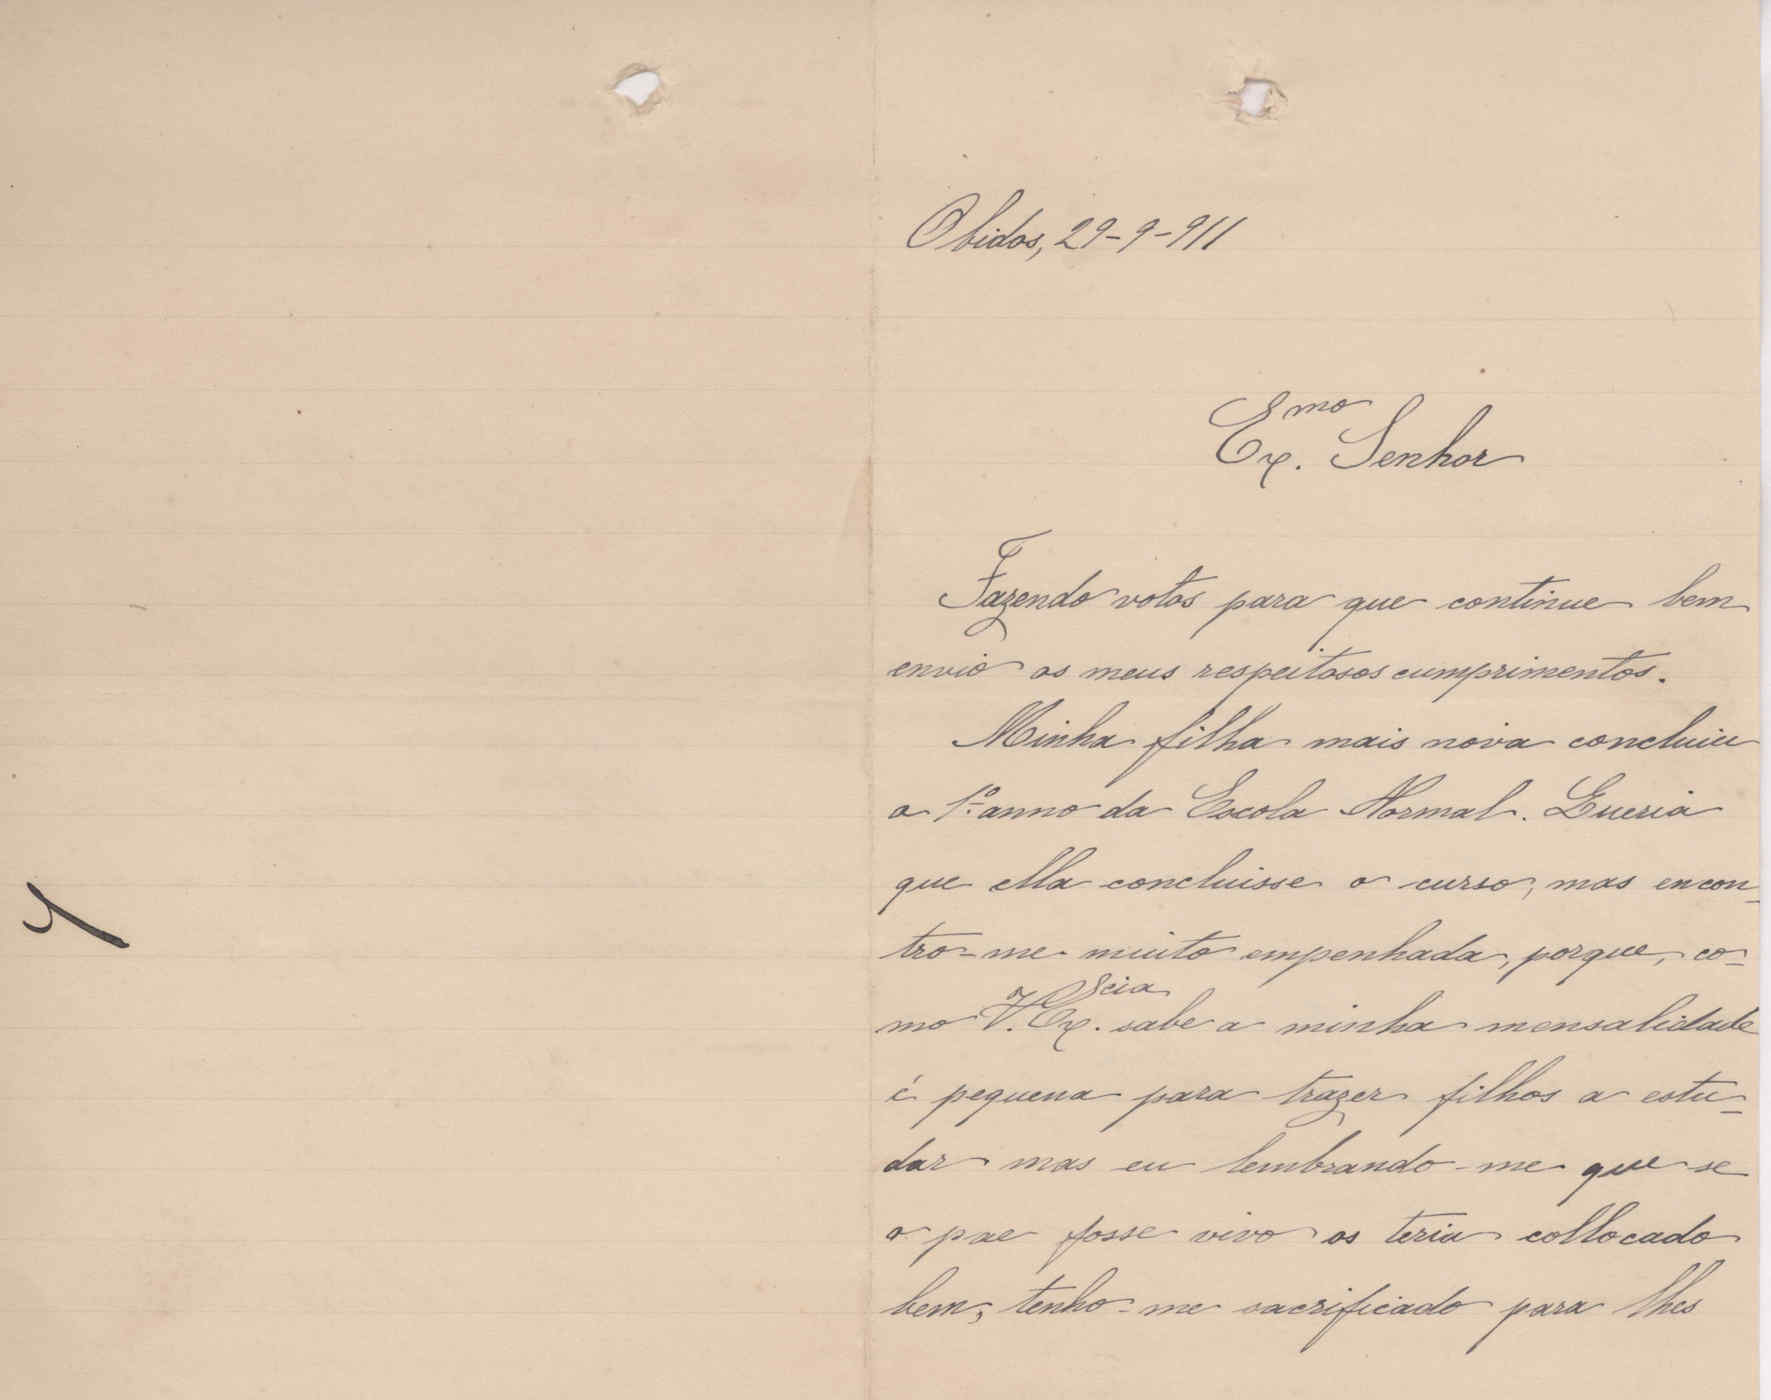 Obidos, 29-9-911
Ex.mo Senhor
Fazendo votos para que continue bem
envio os meus respeitosos cumprimentos.
Minha filha mais nova concluiu
o 1.º anno da Escola Normal. Queria
que ella concluisse o curso, mas encon-
tro-me muito empenhada, porque, co-
mo V. Ex.cia sabe a minha mensalidade
é pequena para trazer filhos a estu-
dar mas eu lembrando-me que se
o pae fosse vivo os teria collocado
bem, tenho-me sacrificado para lhes